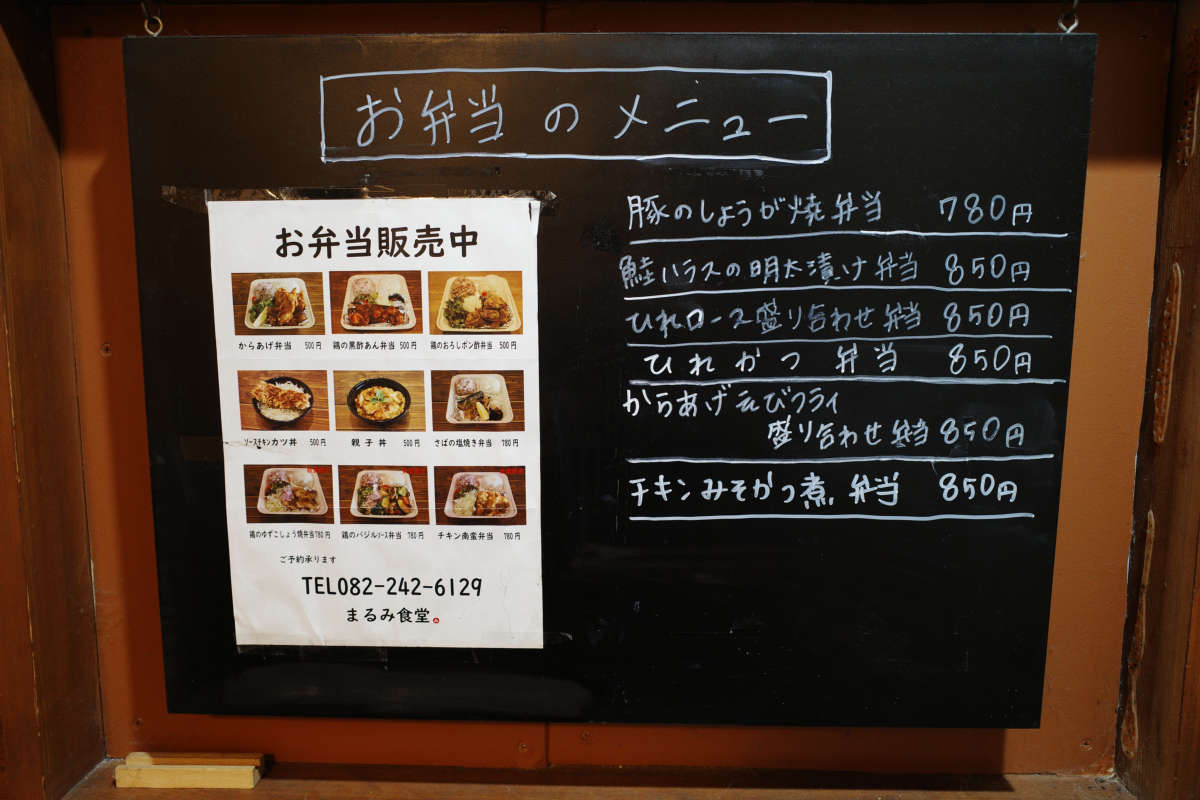 お弁当のメニュー
お弁当販売中
からあげ弁当 500円
鶏の黒酢あん弁当 500円
鶏のおろしポン酢弁当 500円
ソースチキンカツ丼 500円
親子丼 500円
さばの塩焼き弁当 780円
鶏のゆずこしょう焼弁当 780円
鶏のバジルソース弁当 780円
チキン南蛮弁当 780円
ご予約承ります
TEL082-242-6129
まるみ食堂
豚のしょうが焼弁当 780円
鮭ハラスの明太漬け弁当 850円
ひれロース盛り合わせ弁当 850円
ひれかつ弁当 850円
からあげえびフライ
盛り合わせ弁当 850円
チキンみそかつ煮弁当 850円